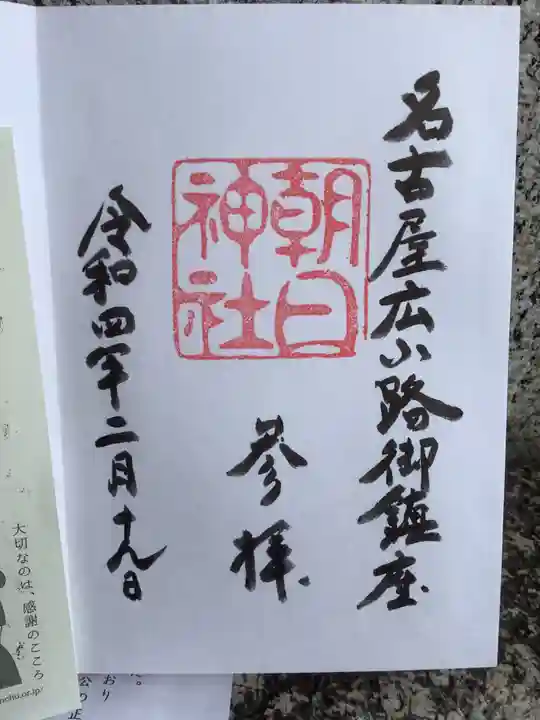 名古屋広小路御鎮座
朝日
神社
参拝
令和四年二月十九日
大切なのは、感謝のこころ
nchu.or.jp/
た。
おり
公の
正